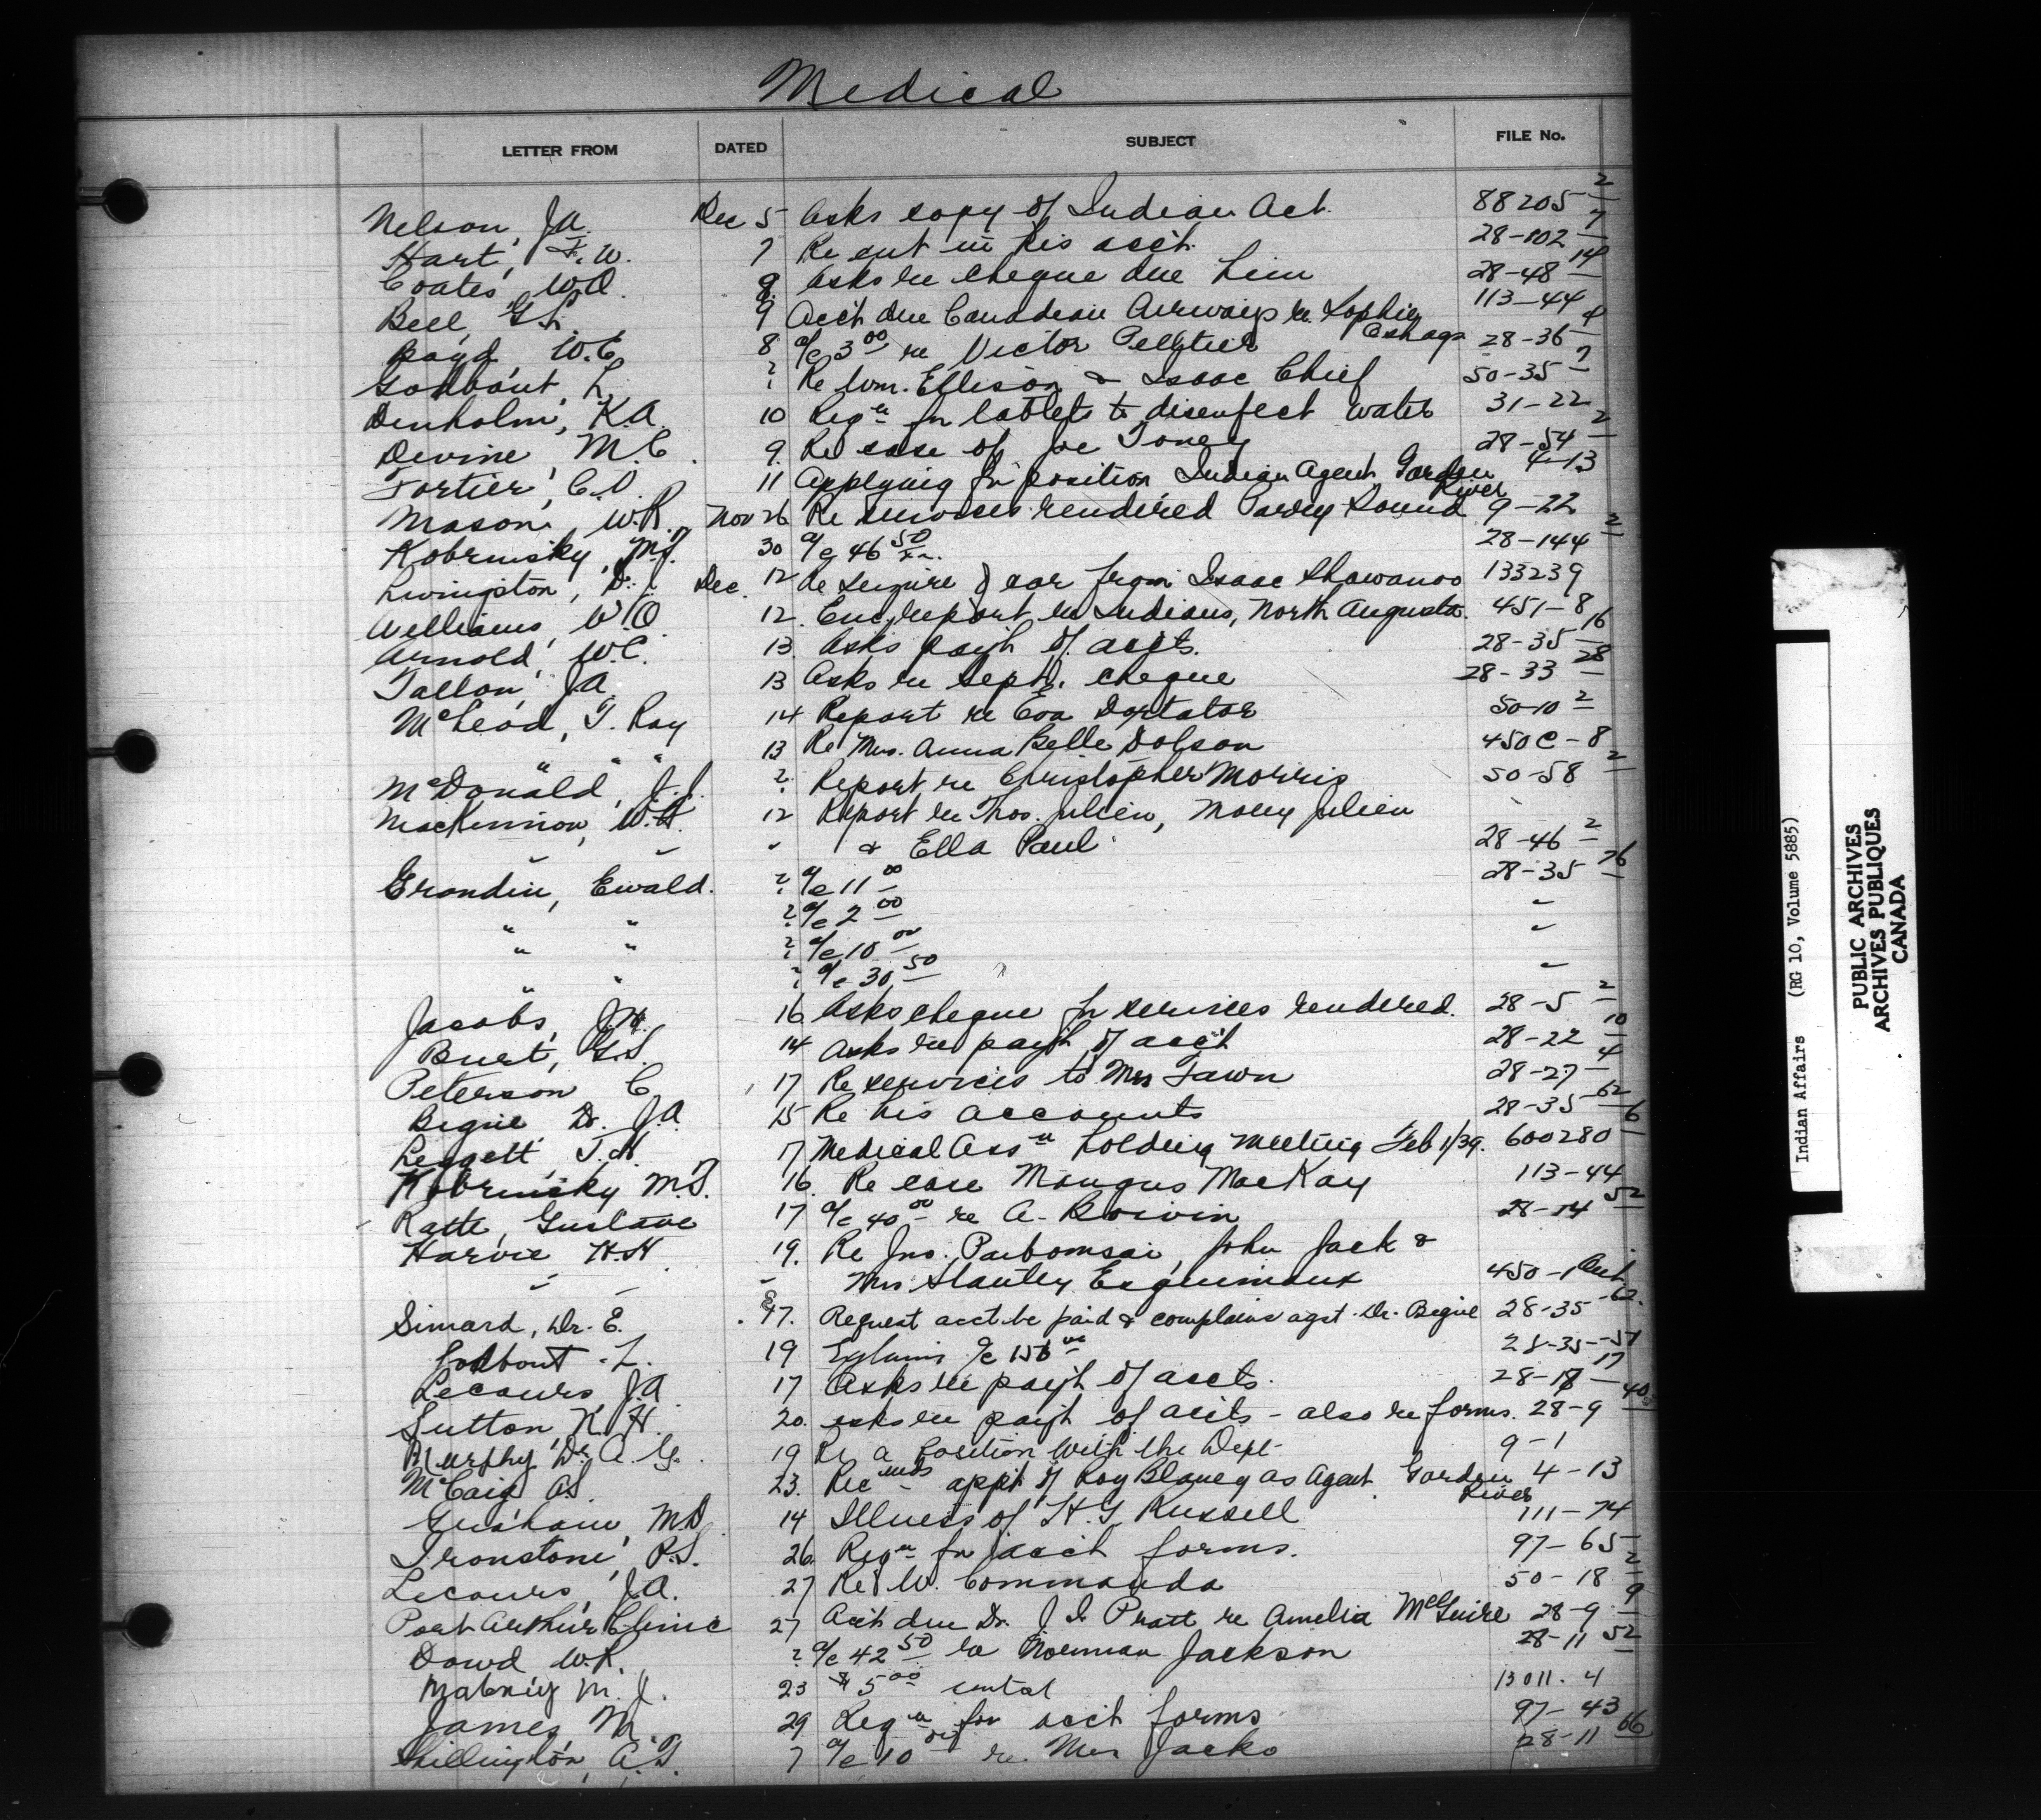 Medical
LETTER FROM DATED SUBJECT FILE No.
Nelson, J.A. Dec 5 Asks copy of Indian Act. 88205-2
Hart, F.W. 7 Re cut in his acct. 28-102-7
Coates, W.O. 8 Asks re cheque due him 28-48-14
Bell, G.L. 9 Acct due Canadian Airways re Sophie 113-44
Boyd W.C. 8 a/c 3 00 re Victor Pelletier 28-36-4
Godbout, L. ? Re Wm. Ellison & Isaac Chief 50-35-7
Denholm, K.A. 10 Reqn for tablets to disinfect water 31-22
Devine, M.C. 9. Re case of Joe Toney 28-54-2
Fortier, C.V. 11 Applying for position Indian Agent, Garden River 4-13
Mason, W.R. Nov 26 Re services rendered Parry Sound 9-22
Kobrinsky, M.T. 30 a/c 46 50 28-144-2
Livingston, Dr. Dec. 12 Re seizure of car from Isaac Shawanoo 133239
Williams, W.O. 12. Enc. report re Indians, North Augusta. 451-8
Arnold, W.C. 13. Asks payt of accts. 28-35-16
Tallon, J.A. 13 Asks re Sept. cheque 28-33-28
McLeod, T. Roy 14 Report re Eva Doxtator 50-10-2
" " " 13 Re Mrs. Anna Belle Dobson 450C-8
McDonald, J.J. ? Report re Christopher Morris 50-58-2
MacKinnon, W.H. 12 Report re Thos. Julien, Molly Julien
" " " & Ella Paul 28-46-2
Grondin, Ewald. ? a/c 11 00 28-35-76
" " ? a/c 2 00 "
" " ? a/c 10 00 "
" " ? a/c 30 50 "
Jacobs, J.M. 16 Asks cheque for services rendered. 28-5-2
Burt, G.S. 14 Asks re payt of acct 28-22-10
Peterson C. 17 Re services to Mrs Fawn 28-27-4
Begue Dr. J.A. 15 Re his accounts 28-35-62
Leggett, T.H. 17 Medical Assn holding meeting Feb 1/39. 600280-6
Kobrinsky M.T. 16. Re case Mangus MacKay 113-44
Ratte, Gustave 17 a/c 40 00 re A. Boivin 28-14-52
Harvie H.H. 19. Re Jno. Paibomsai, John Jack &
" " " Mrs Stanley Esquimaux 450-1
Simard, Dr. E. 17. Request acct be paid & complains agst. Dr. Begue 28-35-62.
Godbout L. 19 Explains a/c 156 00 28-35-57
Lecours J.A. 17 Asks re payt of accts. 28-18-17
Sutton, K.H. 20. asks re payt of accts - also re forms. 28-9-40
Murphy Dr. A.G. 19 Re a position with the Dept 9-1
McCaig A.S. 23. Recmds appt of Roy Blaney as Agent, Garden River 4-13
Grisham, M.D. 14 Illness of H.G. Russell 111-74
Ironstone, R.S. 26. Reqn for acct forms. 97-65
Lecours, J.A. 27 Re W. Commanda 50-18-2
Port Arthur Clinic 27 Acct due Dr. J.I. Pratt re Amelia McGuire 28-9-9
Dowd W.R. ? a/c 42 50 re Norman Jackson 28-11-52
M. J. 23 $5 00 rental 13011-4
James M. 29 Reqn for acct forms 97-43
Shillington, A.T. 7 a/c 10 re Mrs Jacko 28-11-66
Indian Affairs (RG 10, Volume 5885)
PUBLIC ARCHIVES
ARCHIVES PUBLIQUES
CANADA